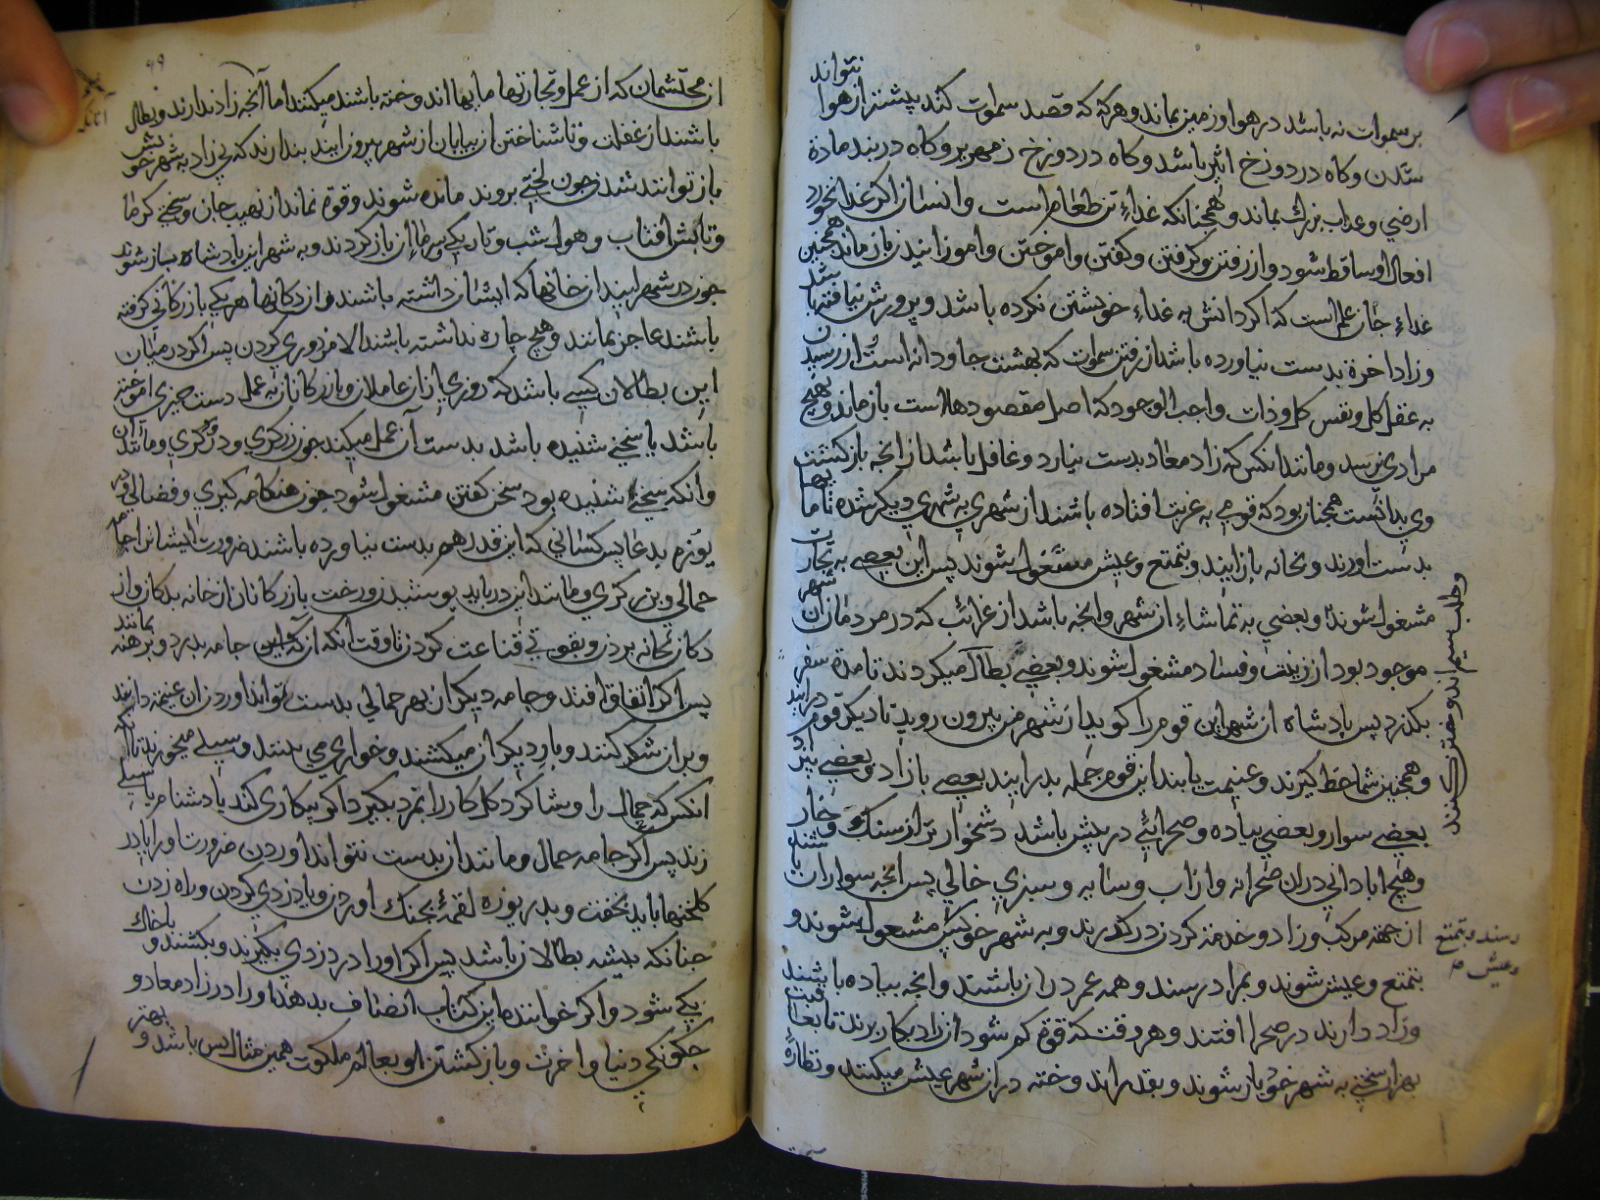 بر سموات نه باشد در هوا و زمین بماند و هرکه که قصد سموات کند پیشتر از هوا نتواند
شدن و کاه در دوزخ اثیر باشد و کاه در دوزخ زمهریر و کاه در بند مادهٔ
ارضی و عذاب بزرك بماند و همچنانکه غذاء تن طعام است و انسان اکر غذا نخورد
افعال او ساقط شود و از رفتن و کرفتن و کفتن و اموختن و اموزانیدن باز ماند همچنین
غذاء جان علم است که اکر دانش به غذاء خویشتن نکرده باشد و پرورش نیافته باشد
و زاد اخرة بدست نیاورده باشد از رفتن سموات که بهشت جاودانه است از رسیدن
به عقل کل و نفس کل و ذات واجب الوجود که اصل مقصودها است باز ماند و بهیچ
مرادی نرسد و مانند انکس که زاد معاد بدست نیارد و غافل باشد از انجه بازکشت
وی بدانست همچنان بود که قومی به غربت افتاده باشند از شهری به شهری دیکر شده تا مایها
بدست اورند و بخانه باز ایند و بتمتع و عیش مشغول شوند پس این بعضی به تجارت
مشغول شوند و بعضی به تماشاء ان شهر و انجه باشد از غرائب که در مردمان ان شهر
موجود بود از زینت و فساد مشغول شوند و بعضی بطال میکردند تا مدة سفر
بکذرد پس پادشاه ان شهر این قوم را کوید از شهر من بیرون روید تا دیکر قوم درایند
و همچنین شما حظ کیرند و غنیمت یابند این قوم جمله بدر ایند بعضی با زاد و بعضی بی زاد
بعضی سوار و بعضی پیاده و صحرائی در پیش باشد دشخوار تر از سنك و خار
و هیچ ابادانی در ان صحرا نه و از اب و سایه و سبزی خالی پس انجه سواران باشند
از جهة مرکب و زاد و خدمة کردن درکذرند و به شهر خویش مشغول شوند و
بتمتع و عیش شوند و بمراد رسند و همه عمر در ان باشند و انجه پیاده باشند
و زاد دارند در صحرا افتند و هر وقت که قوة کم شود از زاد بکار برند تا بعاقبت
بهزار سختی به شهر خود باز شوند و بقدر اند وخته در ان شهر عیش میکنند و نظارهٔ
و طلب سیم اندوختن کنند
رسند و بتمتع
و عیش
۴۹
از محتشمان که از عمل و تجارتها مایها اندوخته باشند میکنند اما انجه زاد ندارند و بطال
باشند از غفلت و ناشناختن از بیابان از شهر بیرون ایند پندارند که بی زاد بشهر خود
باز توانند شدن جون لختی بروند مانده شوند و قوة نماند از نهیب جان و سختی کرما
و تابش افتاب و هول شب و تاریکی و سرما از باز کردند و به شهر این پادشاه باز شوند
جون در شهر ایند از خانها که ایشان داشته باشند و از دکانها هر یکی بازرکانی کرفته
باشند عاجز بمانند و هیچ چاره نداشته باشند الا مزدوری کردن پس اکر در میان
این بطالان کسی باشد که روزی از ان عاملان و بازرکانان به عمل دست جیزی اموخته
باشد یا سخنی شنیده باشد بدست ان عمل میکند جون زرکری و درزکری و مانند ان
و انکه سخنی شنیده بود سخن کفتن مشغول شود جون هنکامه کیری و فضالی و
یوزم بدعا پس کسانی که این قدر هم بدست نیاورده باشند ضرورت ایشانرا اما
حمالی و بزرکری و مانند این در باید پوشید و رخت بازرکانان از خانه بدکان و از
دکان بخانه بردن و بقوتی قناعت کردن تا وقت انکه جامه بدرد و برهنه بمانند
پس اکر اتفاق افتد و جامه دیکر از بهر حمالی بدست تواند اوردن ان غنیمة دانند
و بر ان شکر کنند و بار دیکران میکشند و خواری می بینند و سیلی میخورند تا انکه
انکس که حمال را و شاکرد کل کار را بمزد بکیرد اکر بیکاری کند یا دشنام یا سیلی
زند پس اکر جامه حمال و مانند ان بدست نتواند اوردن ضرورت او را باید
کلخنها باید خفت و بدریوزه لقمهٔ بجنك اوردن و یا دزدی کردن و راه زدن
جنانکه پیشه بطالان باشد پس اکر او را در دزدی بکیرند و بکشند و با خاك
یکی شود و اکر خوانندهٔ این کتاب انصاف بدهد او را در زاد معاد و
جکونکی دنیا و اخرت و باز کشتن او بعالم ملکوت همین مثال بس باشد و بهتر